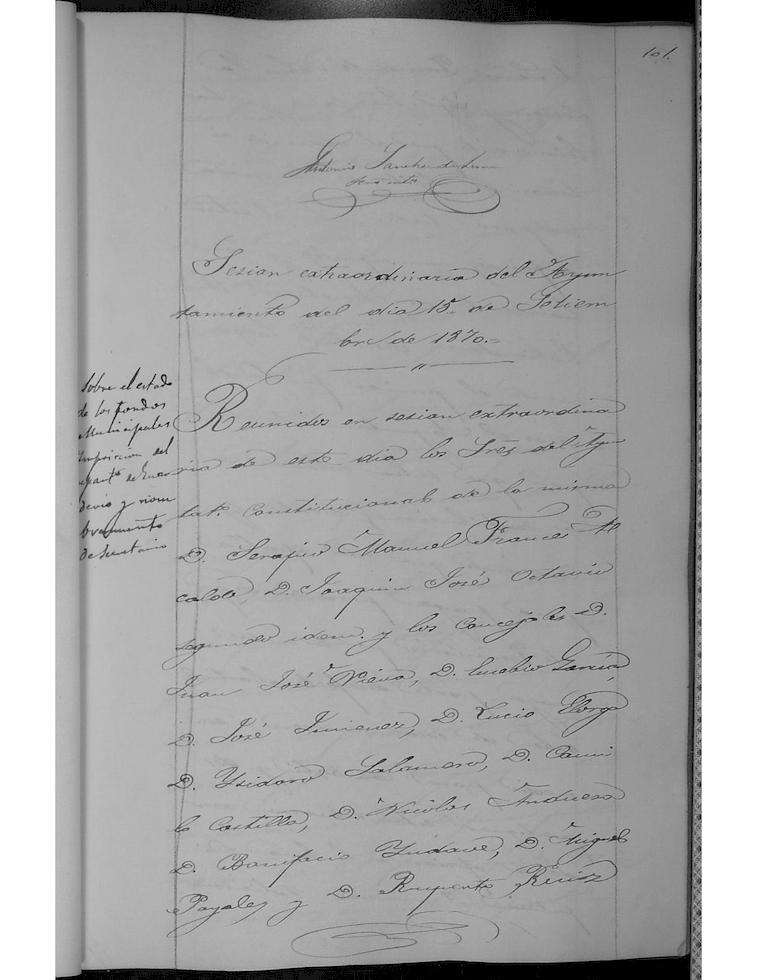 101.
Antonio Sanchez de Luna
Sesion extraordinaria del Ayun
tamiento del dia 15. de Setiem
bre de 1870.=
Sobre el estado
de los fondos
Municipales
Imposicion del
y nom
bramiento
de Secretario
Reunidos en sesion extraordina
ria de este dia los Sres del Ayun
tat.º Constitucional de la misma
D. Serapio Manuel Frances Al
calde, D. Joaquin José Octavio
segundo idem. y los Concejales D.
Juan José Viena, D. Eusebio Garcia,
D. José Jimenez, D. Lucio Elorga
D. Ysidoro Salamero, D. Cami
lo Castilla, D. Nicolas Andueza
D. Bonifacio Yndave, D. Miguel
Pagales y D. Ruperto Ruiz